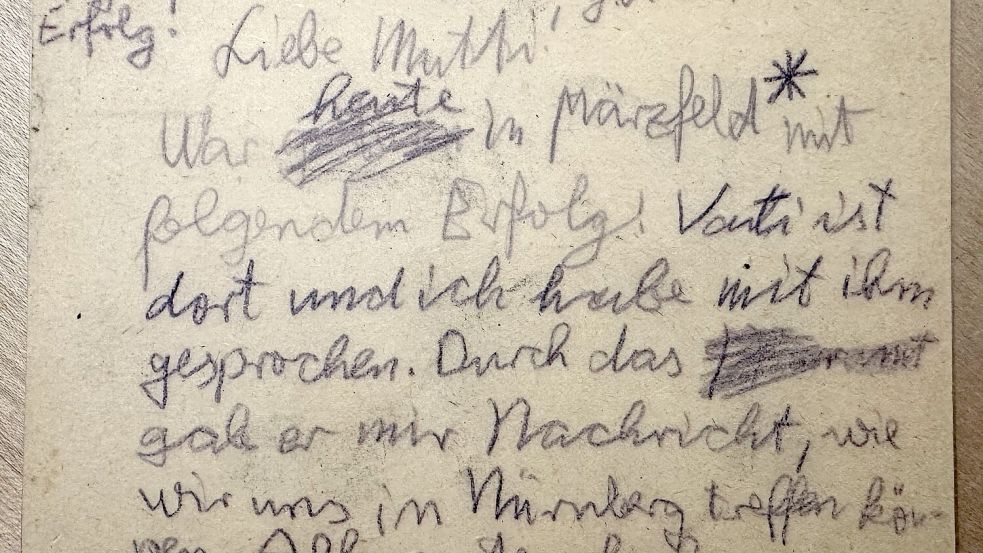 Erfolg!
Liebe Mutti!
War heute in Märzfeld* mit
folgendem Erfolg! Vati ist
dort und ich habe mit ihm
gesprochen. Durch das
gab er mir Nachricht, wie
wir uns in Nürnberg treffen kön-
nen.